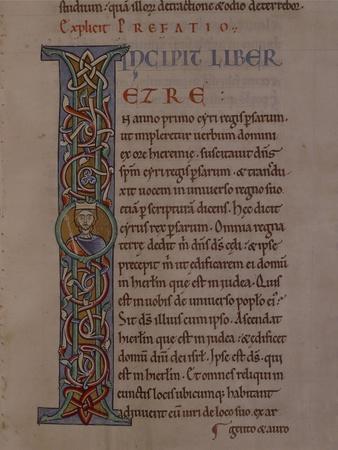 studium · quā illoꝝ detractione & odio deterreboꝛ ·
Explicit Prefatio ·
Incipit Liber
Ezre :
N anno primo cyri regis persarum ·
ut impleretur uerbum domini
ex ore hieremie · suscitauit dñs
spm̄ cyri regis persarum · & tradu
xit uocem in uniuerso regno suo
etiā p scripturā dicens · Hec dicit
cyrus rex persarum · Omnia regna
terre dedit m̄ dñs ds̄ cęli · & ipse
precepit m̄ ut edificarem ei domū
in hierlm̄ que est in iudea · Quis
est in uobis de uniuerso poplo ei ·
Sit ds̄ illius cum ipso · Ascendat
hierlm̄ que est in iudea · & edificet
domū dni dei isrl̄ · Ipse est ds̄ · qui
est in hierlm̄ · Et omnes reliqui in
cunctis locis ubicumque habitant
adiuuent eum uiri de loco suo · ex ar
gento & auro